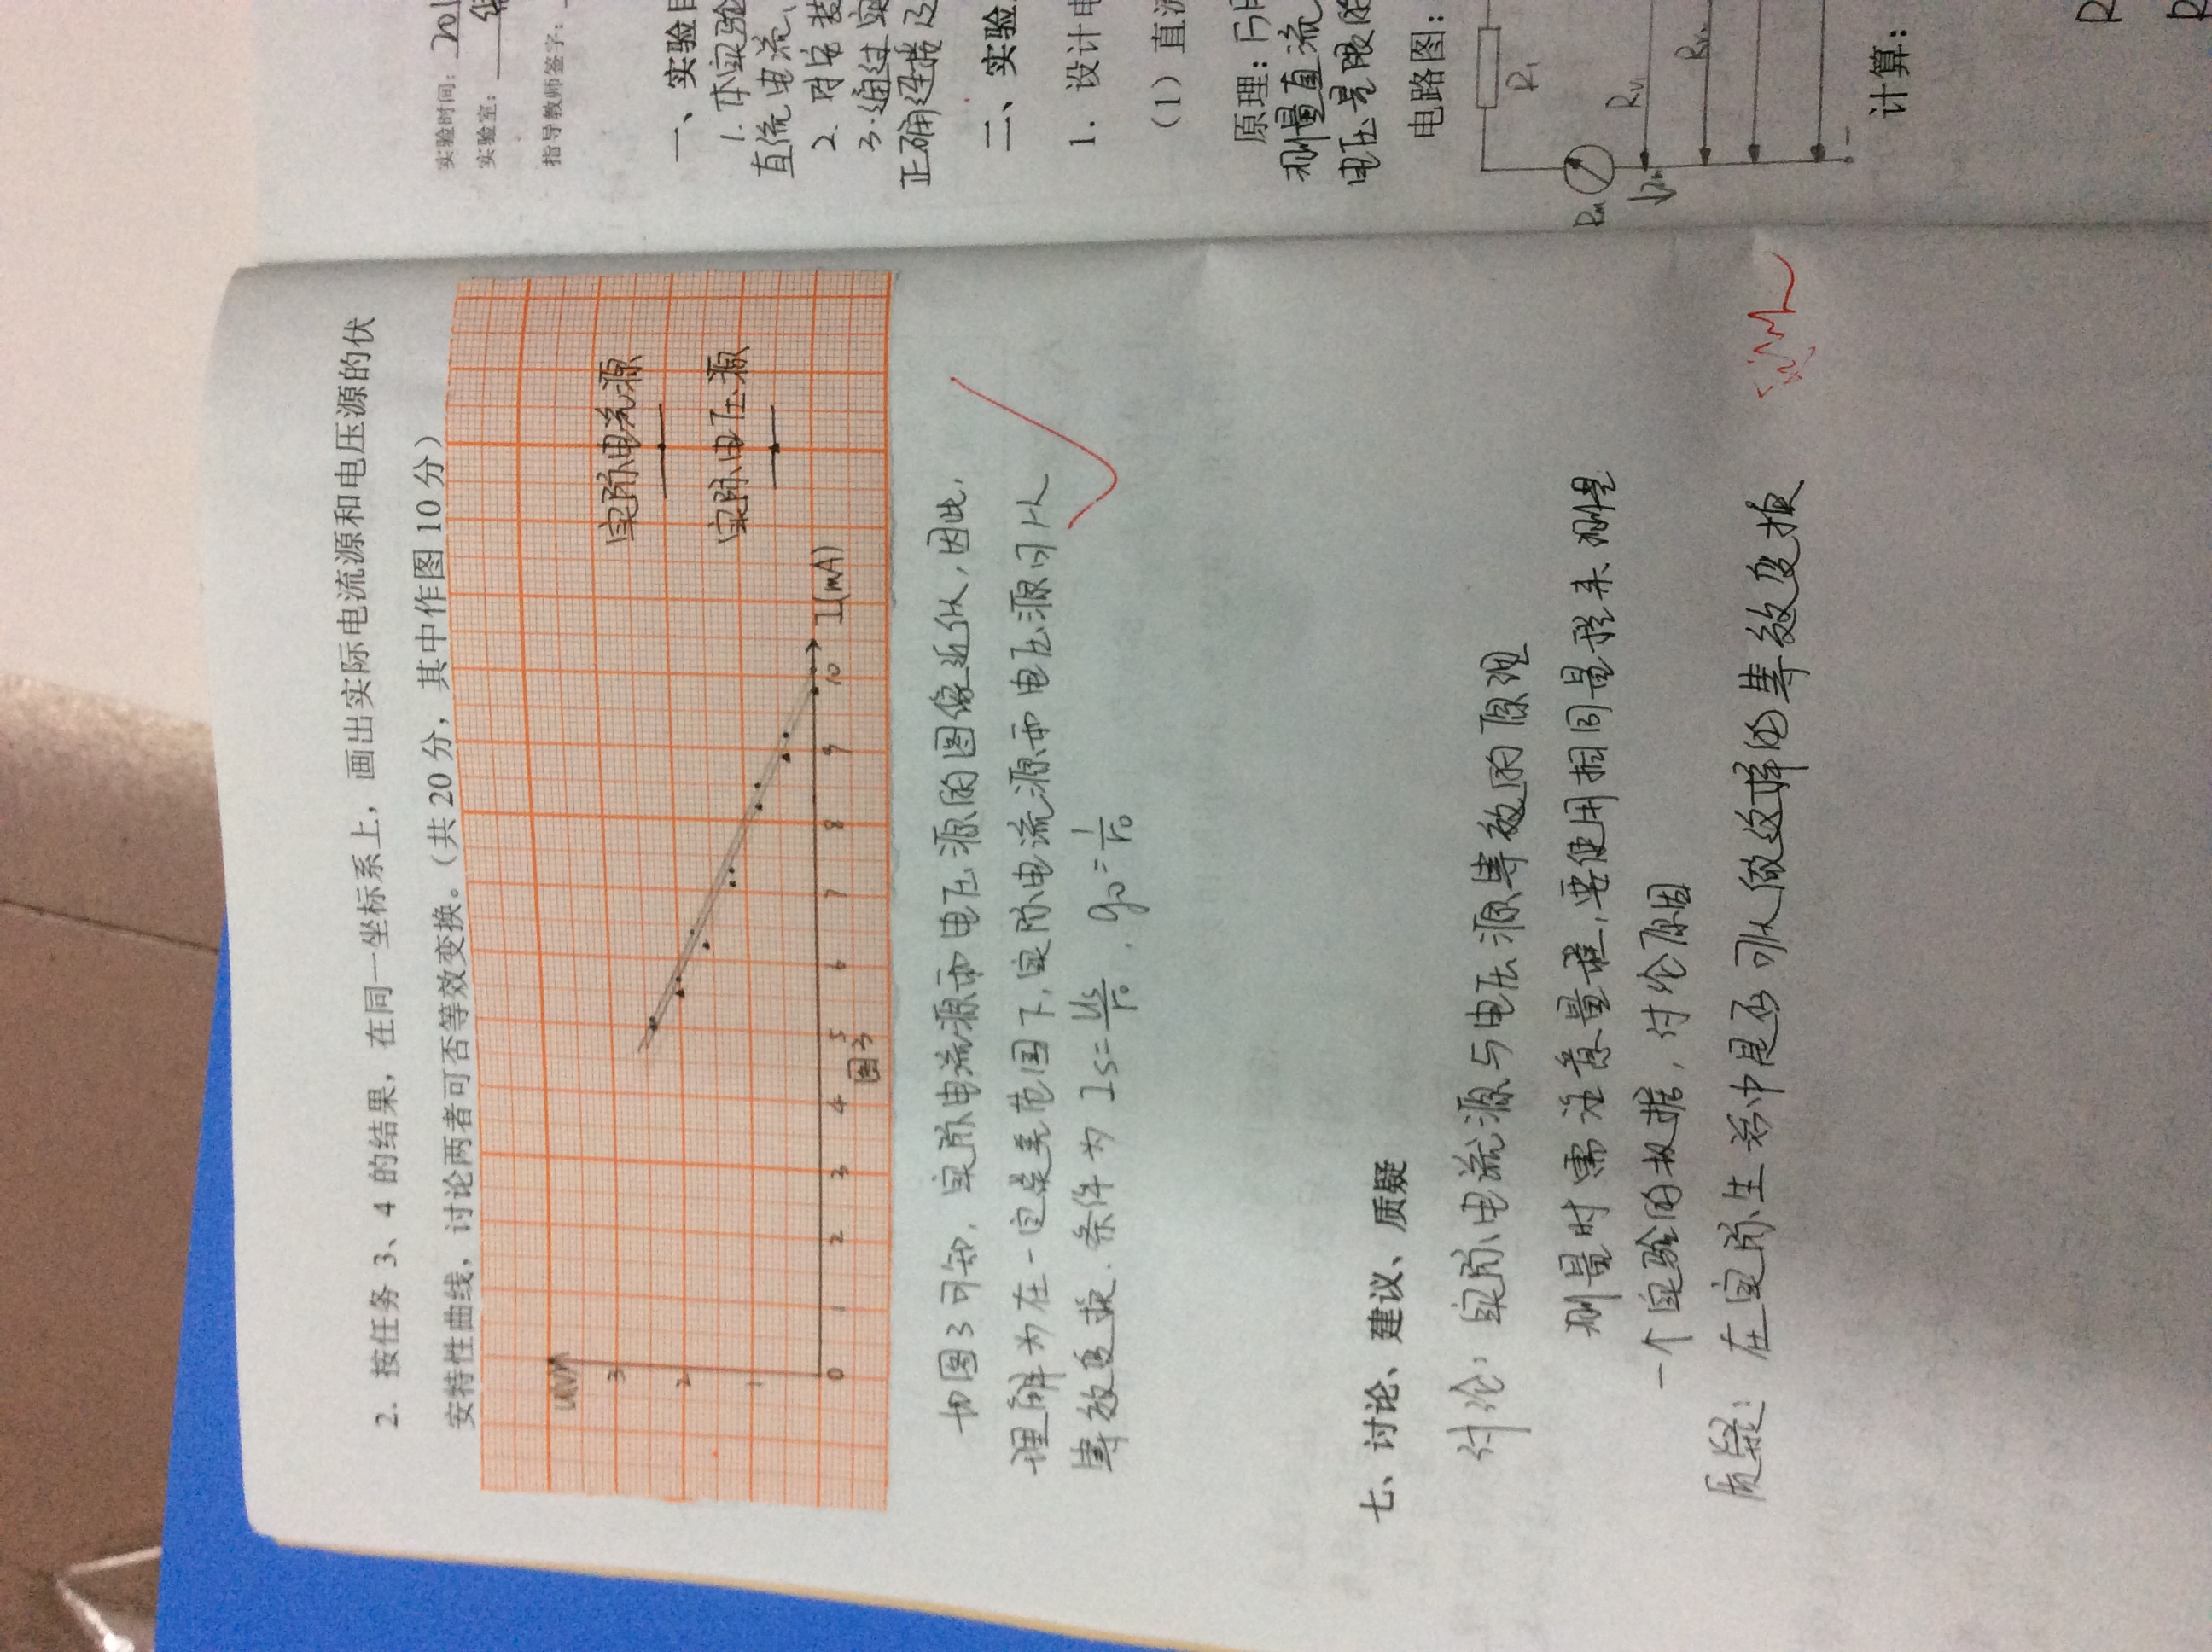 2. 按任务 3、4 的结果，在同一坐标系上，画出实际电流源和电压源的伏
安特性曲线，讨论两者可否等效变换。（共 20 分，其中作图 10 分）
U(V)
3
2
1
0 1 2 3 4 5 6 7 8 9 10 I(mA)
图3
实际电流源
实际电压源
如图3可知，实际电流源和电压源的图像近似，因此，
理解为在一定误差范围下，实际电流源和电压源可以
等效变换. 条件为 Is=Us/r₀ , g₀=1/r₀
七、讨论、建议、质疑
讨论：实际电流源与电压源等效的原理
测量时需注意量程，要使用相同量程来测量
一个实验的数据，讨论原因
质疑：在实际生活中是否可以做这样的等效变换
实验时间：201
实验室：
指导教师签字：
一、实验目
1. 本实验
直流电流、
2. 对安装
3. 通过实
正确连接及
二、实验
1. 设计电
（1）直流
原理：用
测量直流
电压量限的
电路图：
R₁
Rm
Rv₁
Rv₂
−
计算：
R
R